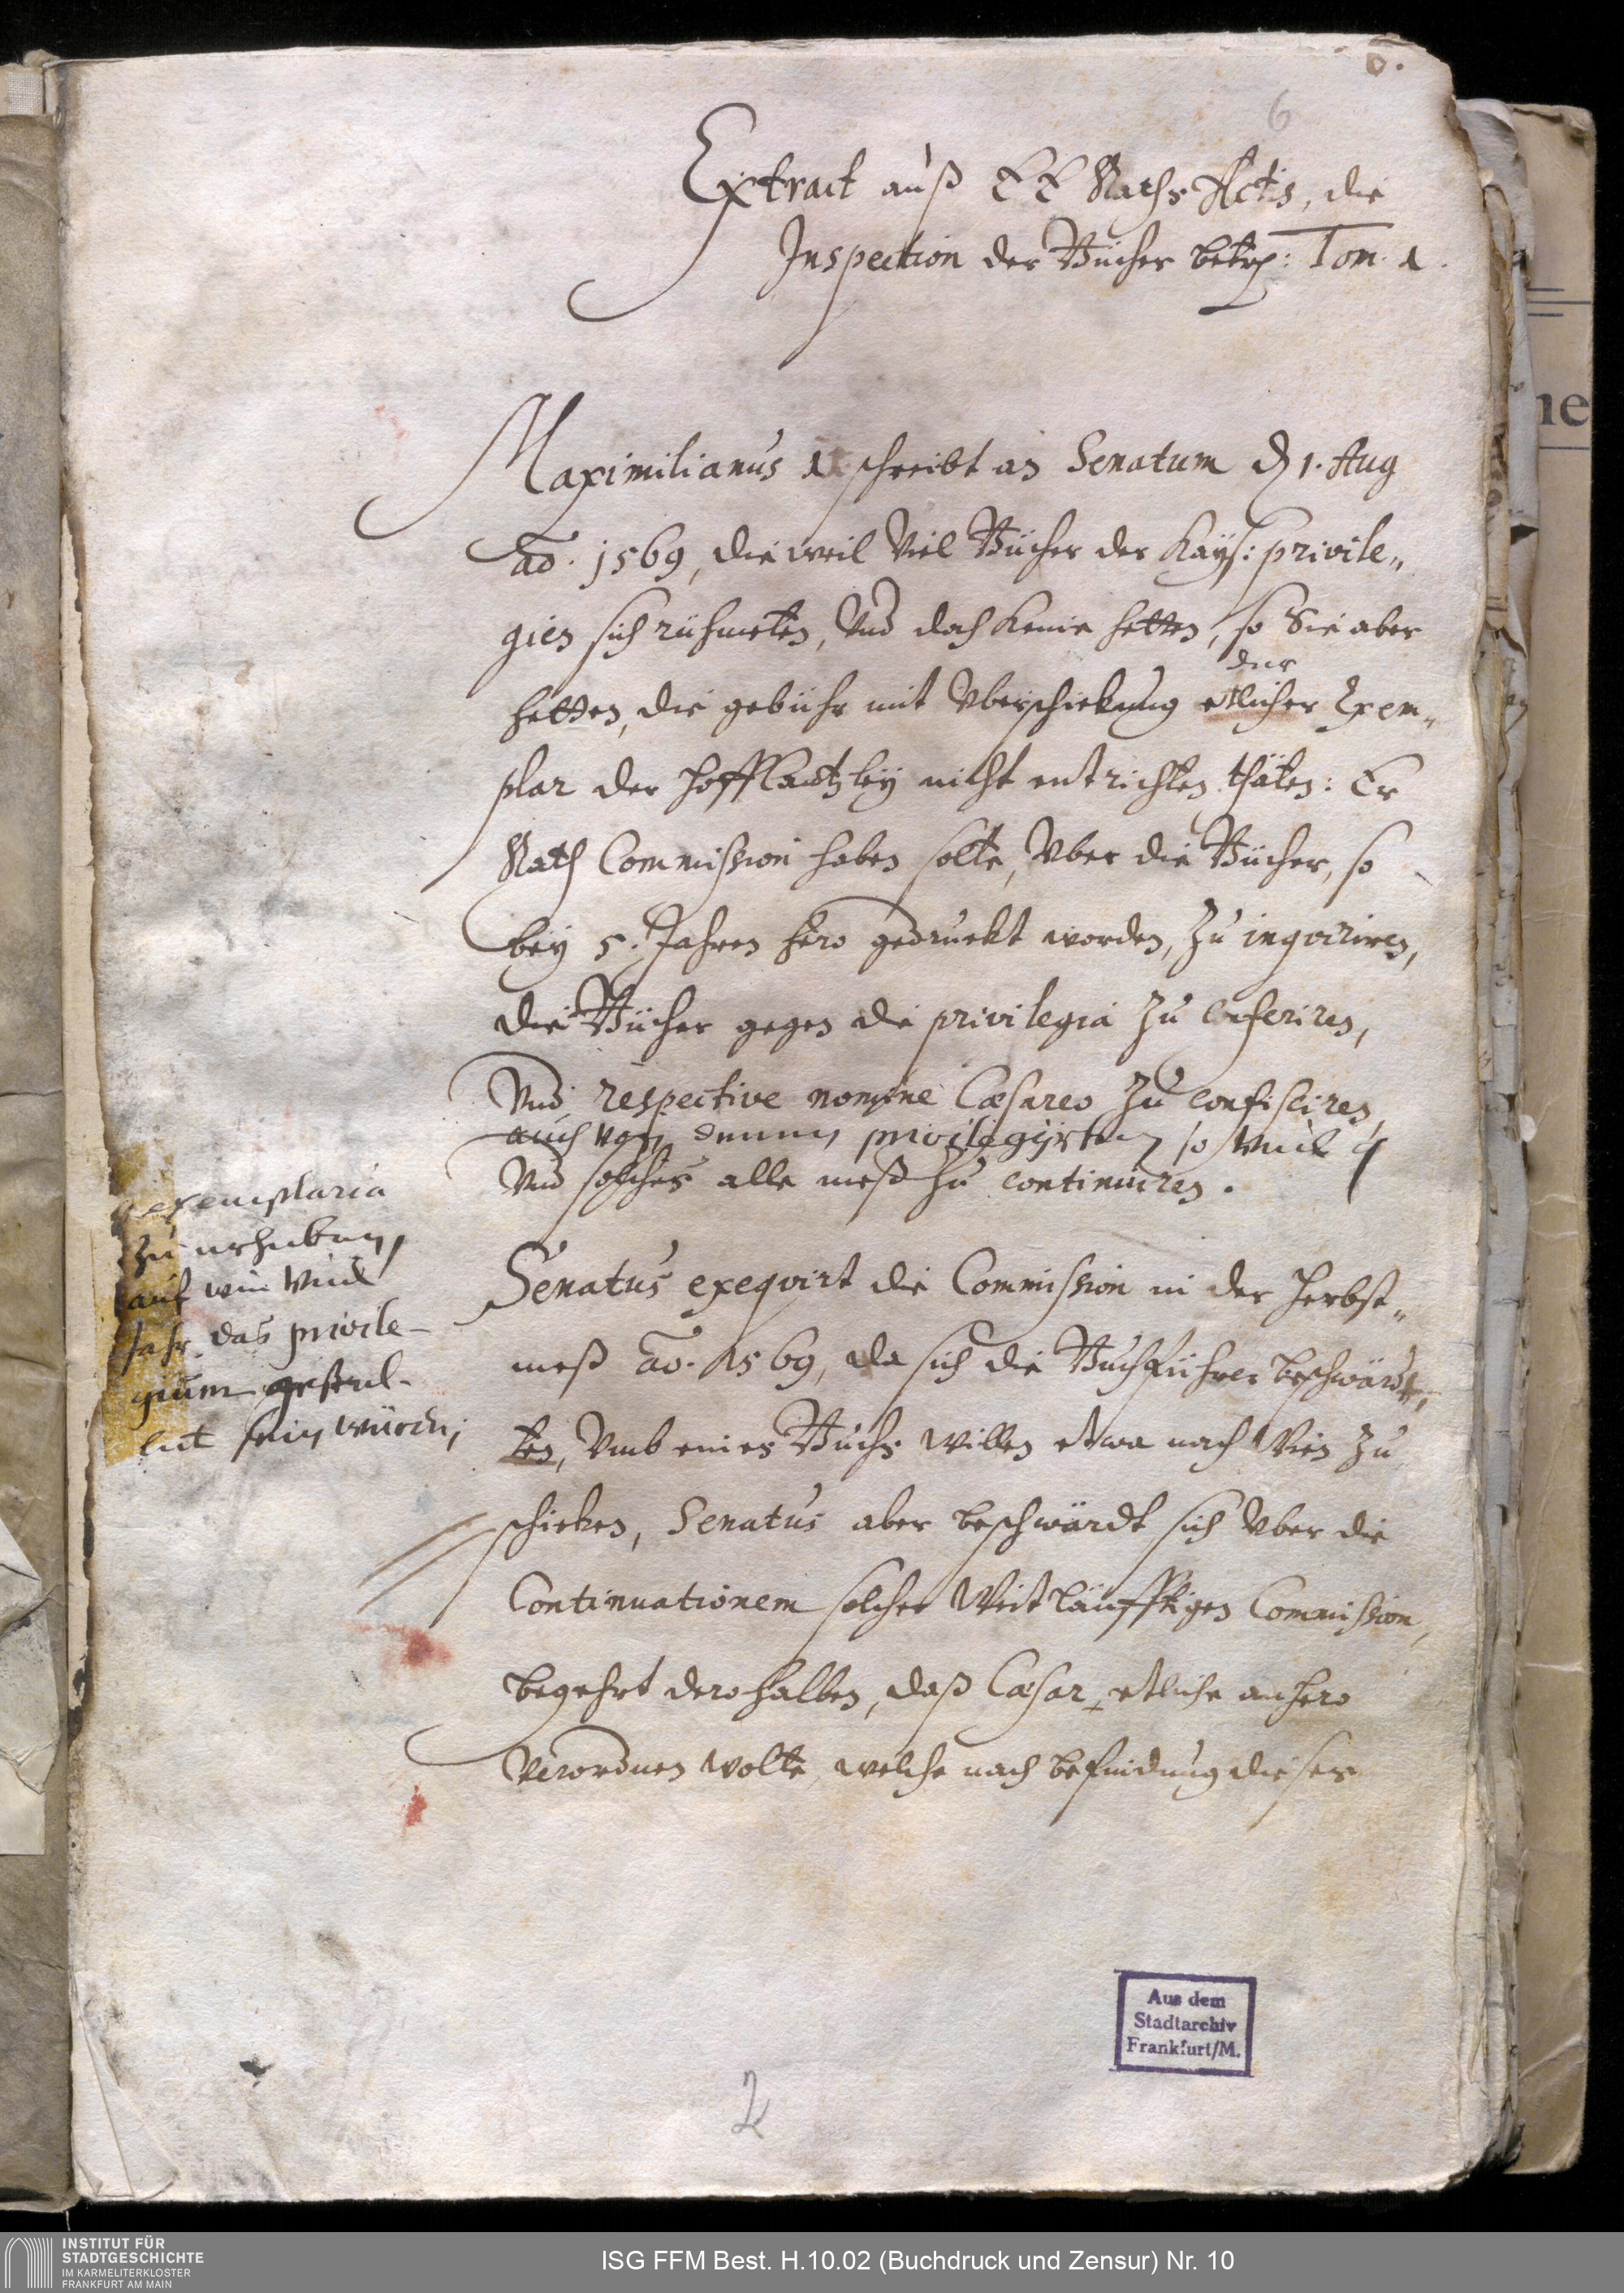 6.
6
Extract auß EE Raths Actis, die
Inspection der Bücher betr: Tom. 1.
Maximilianus schreibt an Senatum d 1. Aug
ao. 1569, die weil viel Bücher der Kays: privile„
gien sich rühmeten, Vnd doch keine hetten, so Sie aber
der
hetten, die gebühr mit Vberschickung etlicher Exem„
plar der Hoff Cantzley nicht entrichten thäten: Er
Rath Commission haben solte, Vber die Bücher, so
bey 5. Jahren hero gedruckt worden, zu inqviriren,
die Bücher gegen die privilegia zu conferiren,
Vnd respective nomine Cæsareo zu confisciren,
auch von denen privilegijrten so viel
Vnd solches alle meß zu continuiren.
exemplaria
zu erheben,
auf wie viel
Jahr das privile-
gium gestel-
let sein würde;
Senatus exeqvirt die Commission in der Herbst„
meß ao. 1569, da sich die Buchführer beschwärd„
ten, Vmb eines Buchs willen etwa nach Wien zu
schicken, Senatus aber beschwärdt sich Vber die
Continuationem solcher Weitläuffigen Commission,
begehrt derohalben, daß Cæsar etliche anhero
Verordnen wolte, welche nach befindung dieser
Aus dem
Stadtarchiv
Frankfurt/M.
2
INSTITUT FÜR
STADTGESCHICHTE
IM KARMELITERKLOSTER
FRANKFURT AM MAIN
ISG FFM Best. H.10.02 (Buchdruck und Zensur) Nr. 10